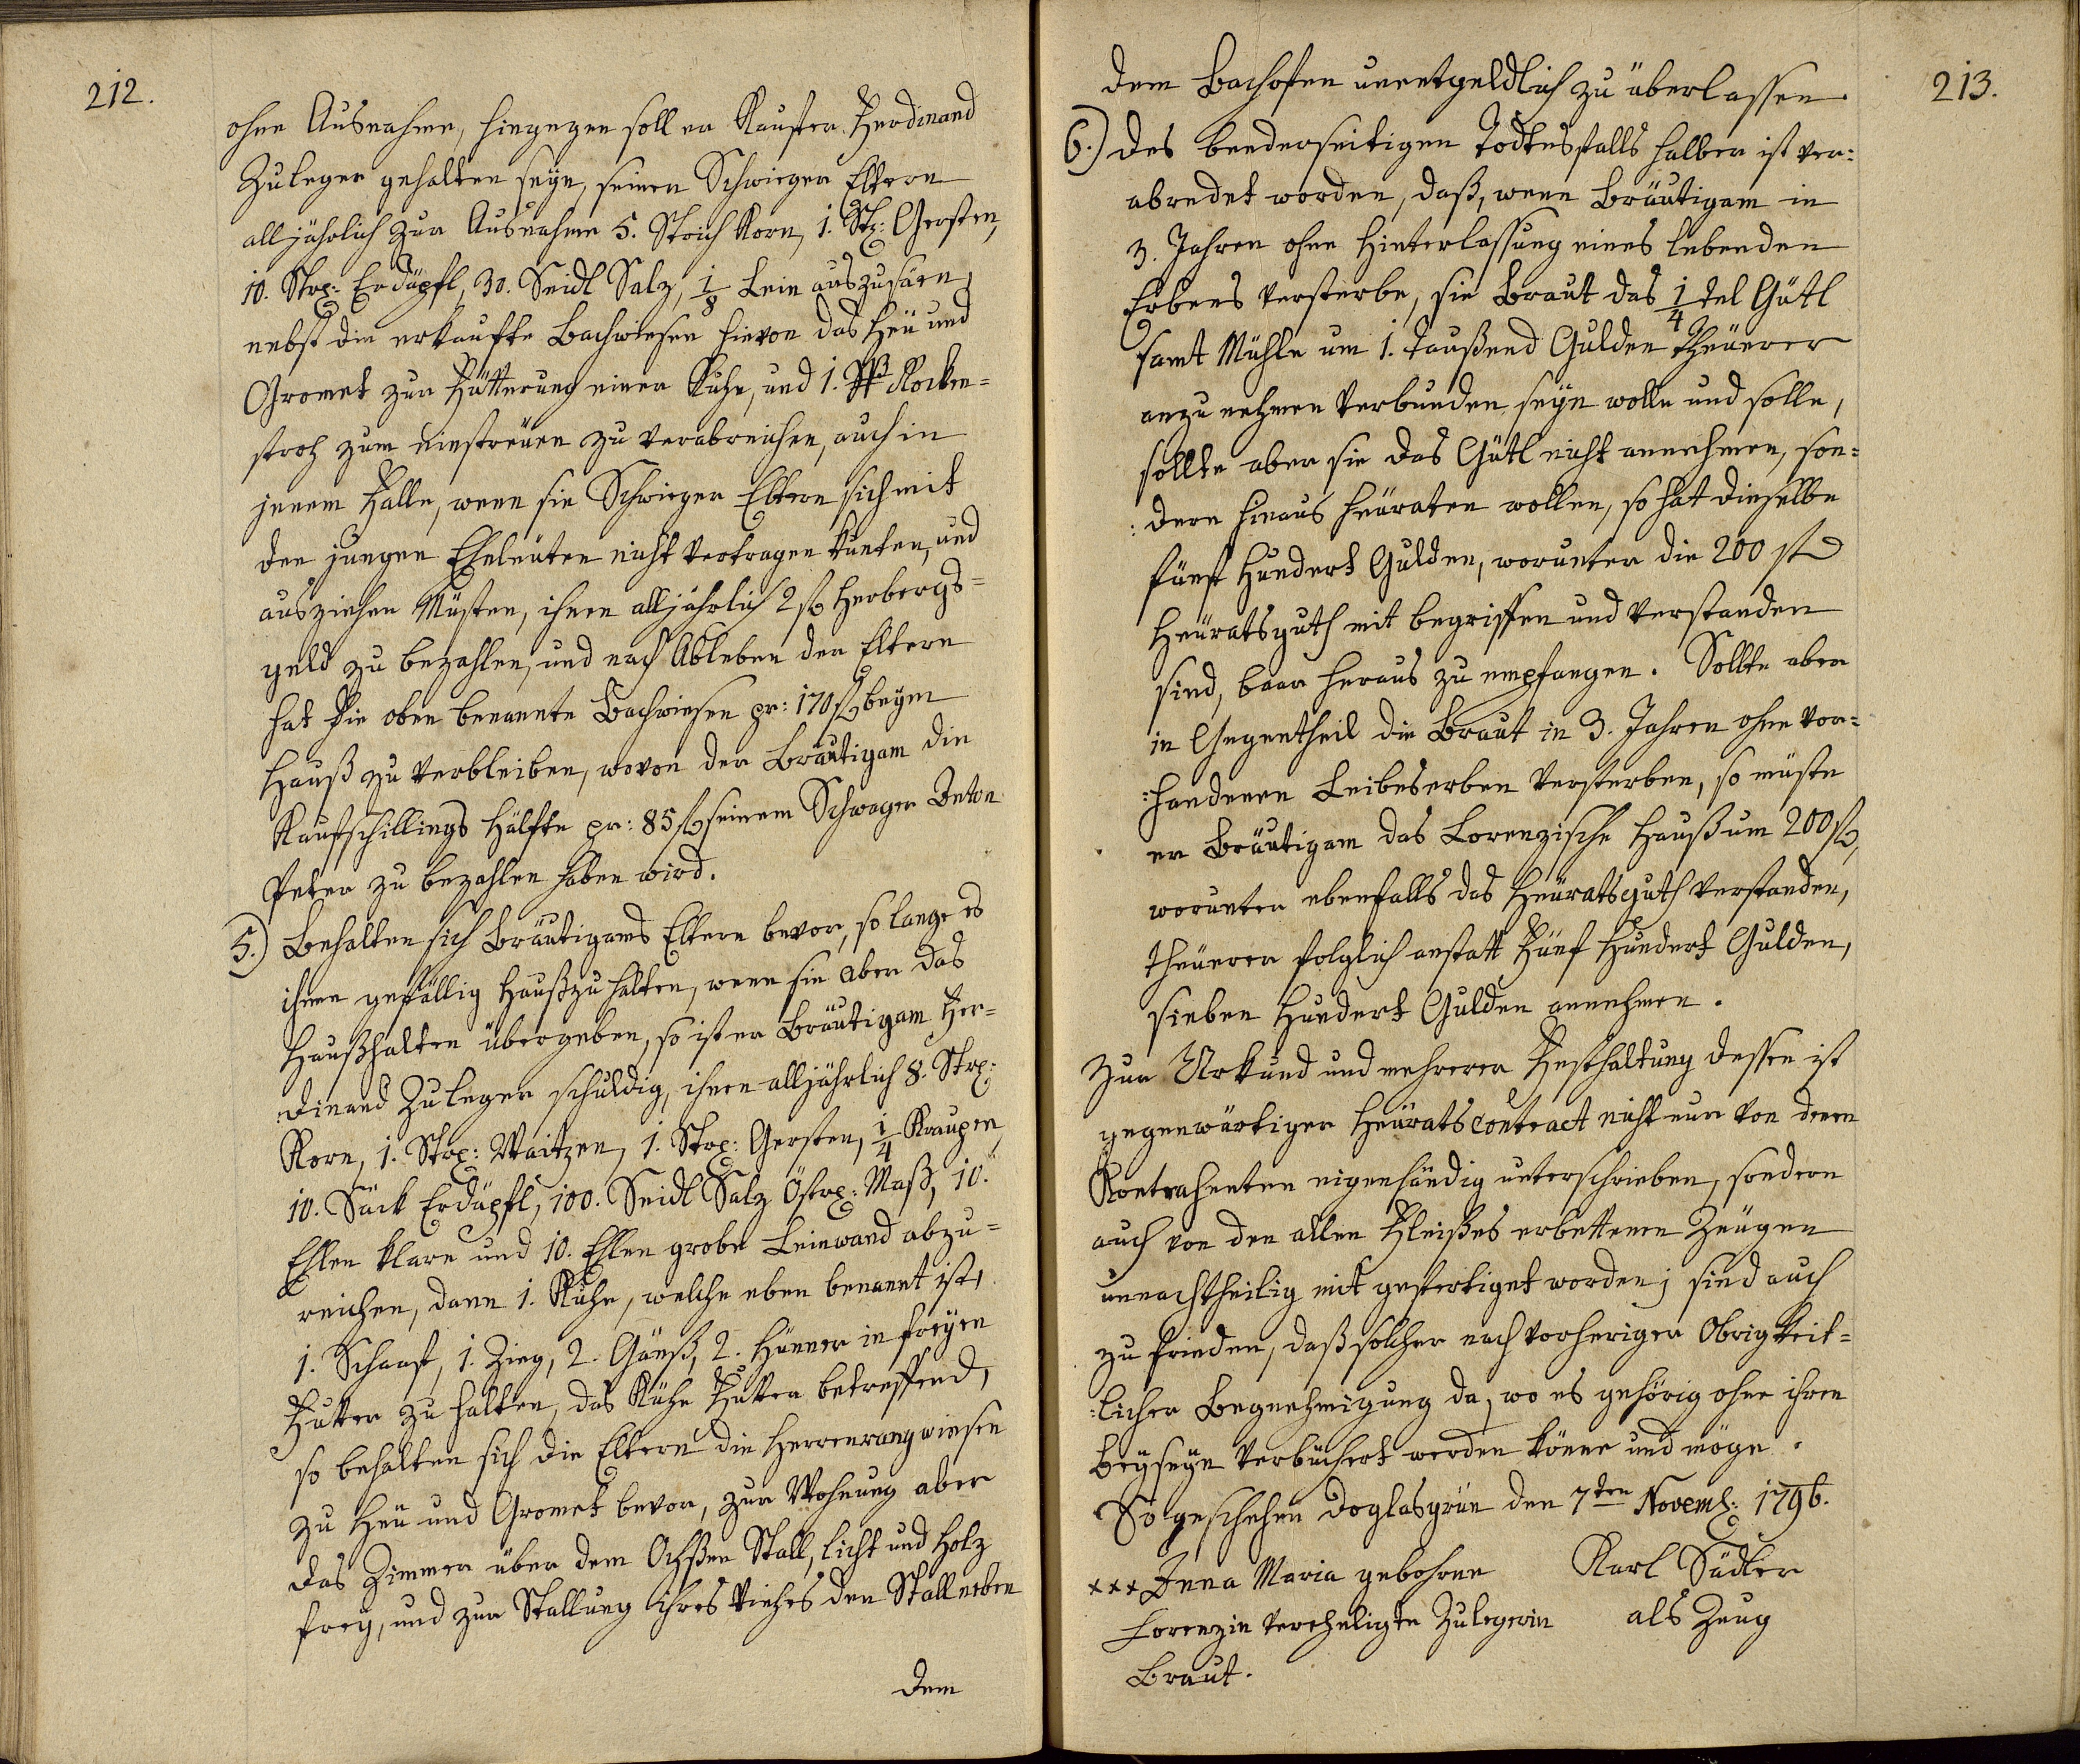 212.
ohne Ausnahme, hingegen soll er Kaufer Ferdinand
Zuleger gehalten seÿn, seinen Schwieger Eltern
alljährlich zur Ausnahme 5. Strich Korn, 1. Str: Gersten,
10. Str: Erdäpfl, 30. Seidl Salz, 1/8 Lein auszusäen,
nebst die erkaufte Bachwiesen hievon das Heü und
Gromet zur Fütterung einer Kuhe, und 1. ßß Rocken-
stroh zum einströuen zu verabreichen, auch in
jenem Falle, wenn sie Schwieger Eltern sich mit
den jungen Eheleuten nicht vertragen kunten, und
ausziehen Müsten, ihnen alljährlich 2 fl Herbergs-
geld zu bezahlen, und nach Ableben der Eltern
hat die oben benannte Bachwiesen pr: 170 fl beÿm
Hauß zu verbleiben, wovon der Bräutigam die
Kaufschillings Hälfte pr: 85 fl seinem Schwager Anton
Peter zu bezahlen haben wird.
5.) Behalten sich Bräutigams Eltern bevor, so lange es
ihnen gefällig Haußzuhalten, wenn sie aber das
Haußhalten übergeben, so ist er Bräutigam Fer-
dinand Zuleger schuldig, ihnen alljährlich 8. Str:
Korn, 1. Str: Waitzen, 1. Str: Gersten, 1/4 Kraupen,
10. Säck Erdäpfl, 100. Seidl Salz Östr: Maß, 10.
Ehlen klare und 10. Ehlen grobe Leinwand abzu-
reichen, dann 1. Kuhe, welche eben benannt ist,
1. Schaaf, 1. Zieg, 2. Gänß, 2. Hüner in freÿen
Futter zu halten, das Kühe Futter betreffend,
so behalten sich die Eltern die Herrenrangwiesen
zu Heü und Gromet bevor, zur Wohnung aber
das Zimmer über dem Ochßen Stall, licht und Holz
freÿ, und zur Stallung ihres Viehes den Stall neben
dem
213.
dem Bachofen unentgeldlich zu überlassen.
6.) Des beederseitigen Todtesfalls halber ist ver:
abredet worden, daß, wenn Bräutigam in
3. Jahren ohne Hinterlassung eines lebenden
Erbens versterbe, sie Braut das 1/4 tel Gütl
samt Mühle um 1. taußend Gulden Theuerer
anzunehmen verbunden seÿn wolle und solle,
sollte aber sie das Gütl nicht annehmen, son:
:dern hinaus heüraten wollen, so hat dieselbe
fünf Hundert Gulden, worunter die 200 fl
Heüratsguth mit begriffen und verstanden
sind, baar heraus zu empfangen. Sollte aber
in Gegentheil die Braut in 3. Jahren ohne vor:
:handenen Leibeserben versterben, so müste
er Bräutigam das Lorenzische Hauß um 200 fl,
worunter ebenfalls das Heüratsguth verstanden,
theuerer folglich anstatt Fünf Hundert Gulden,
sieben Hundert Gulden annehmen.
Zur Urkund und mehrerer Festhaltung dessen ist
gegenwärtiger Heürats contract nicht nur von denen
Kontrahenten eigenhändig unterschrieben, sondern
auch von den allen Fleißes erbettenen Zeügen
unnachtheilig mit gefertiget worden; sind auch
zu frieden, daß solcher nach vorheriger Obrigkeit-
:licher Begnehmigung da, wo es gehörig ohne ihren
beÿseÿn verbüchert werden könne und möge.
So geschehen Doglasgrün den 7ten Novemb: 1796.
xxx Anna Maria gebohrne
Lorenzin vereheligte Zulegerin
Braut.
Karl Sädler
als Zeug